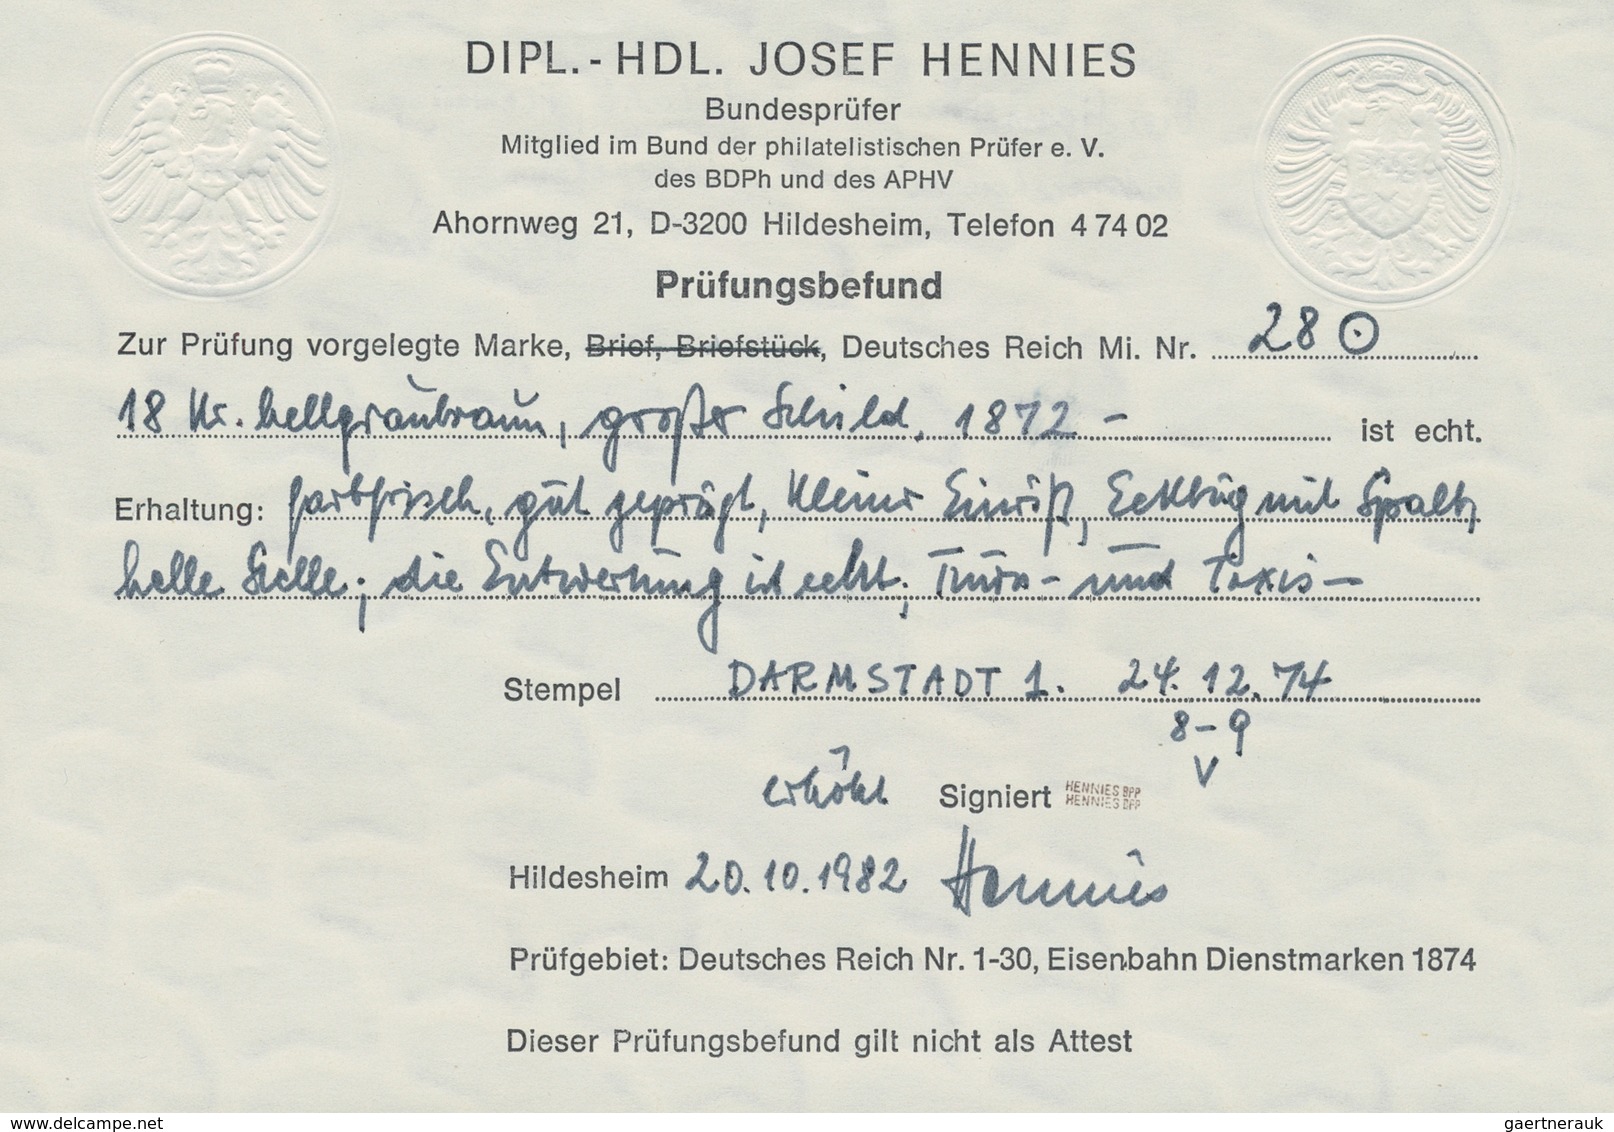 DIPL.-HDL. JOSEF HENNIES
Bundesprüfer
Mitglied im Bund der philatelistischen Prüfer e. V.
des BDPh und des APHV
Ahornweg 21, D-3200 Hildesheim, Telefon 4 74 02
Prüfungsbefund
Zur Prüfung vorgelegte Marke, Brief, Briefstück, Deutsches Reich Mi. Nr. 28 ⊙
18 Kr. hellgraubraun, großer Schild, 1872 - ist echt.
Erhaltung: farbfrisch, gut geprägt, kleiner Einriß, Eckbug mit Spalt,
helle Stelle; die Entwertung ist echt; Thurn- und Taxis-
Stempel DARMSTADT 1. 24. 12. 74
8-9
V
erhöht Signiert HENNIES BPP
HENNIES BPP
Hildesheim 20.10.1982 Hennies
Prüfgebiet: Deutsches Reich Nr. 1-30, Eisenbahn Dienstmarken 1874
Dieser Prüfungsbefund gilt nicht als Attest
www.delcampe.net
gaertnerauk